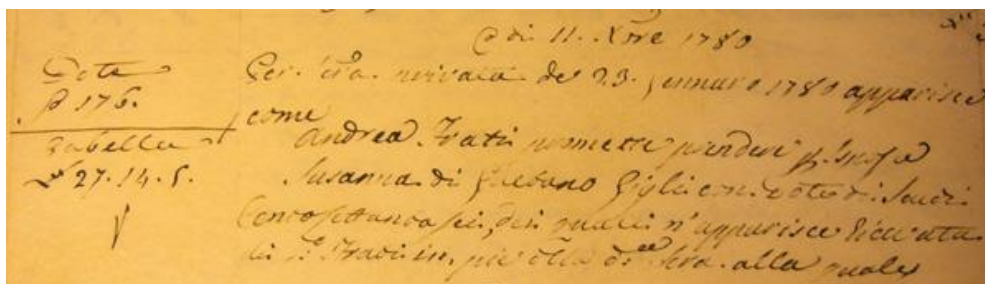 a di 11. Xbre 1780
Dote
∆ 176.
Gabella
£ 27.14.5.
Per. scra. privata de' 23. Gennaro 1780 apparisce
come
Andrea. Frati promette prender p. sposa
Susanna. di Gaetano Gigli con. dote di. Scudi.
Centosettantasei, dei quali n'apparisce ricevuta
di Frati in. piè alla da. scra. alla quale